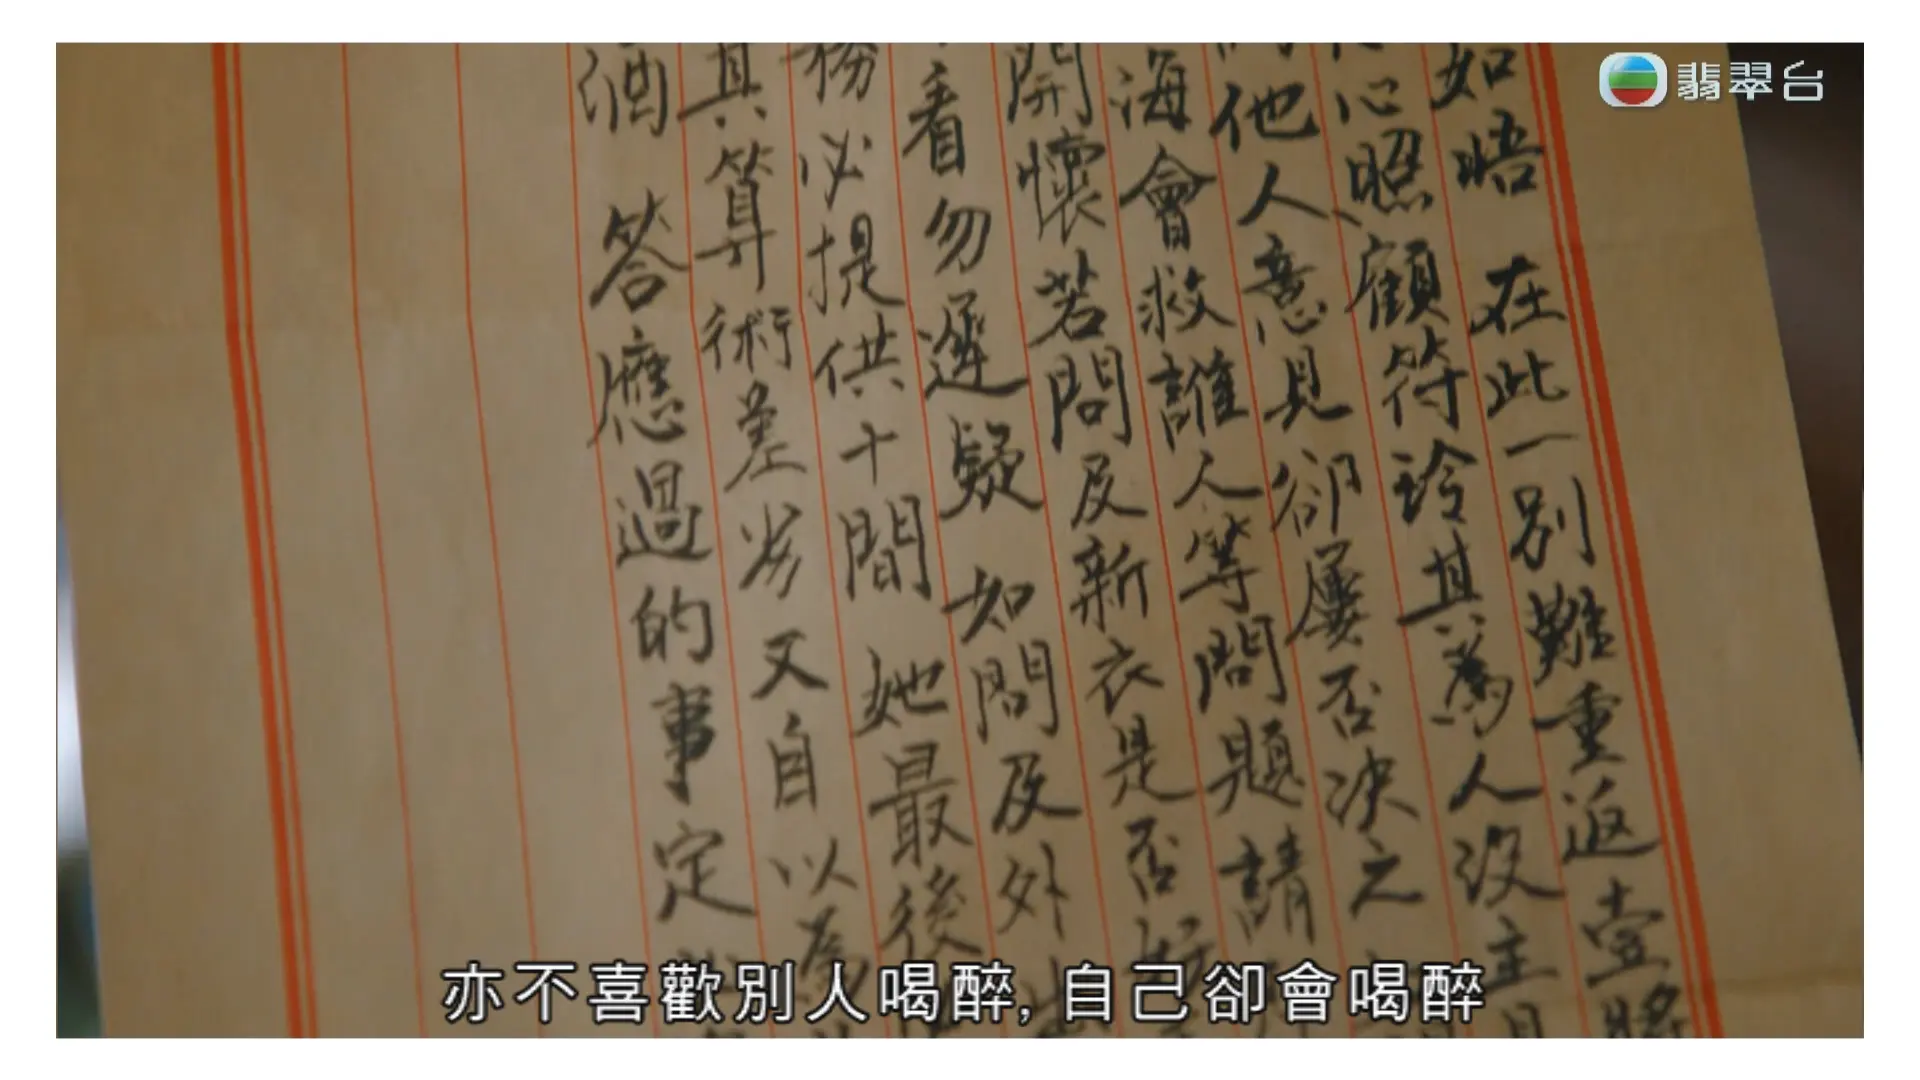 翡翠台
如晤 在此一別難重返壹將
心照顧符玲其為人沒主見
他人意見卻屢否決之
海會救誰人等問題請
開懷若問及新衣是否好
看勿遲疑 如問及外
務必提供十間 她最後
其算術差劣又自以為
酒 答應過的事定
亦不喜歡別人喝醉, 自己卻會喝醉